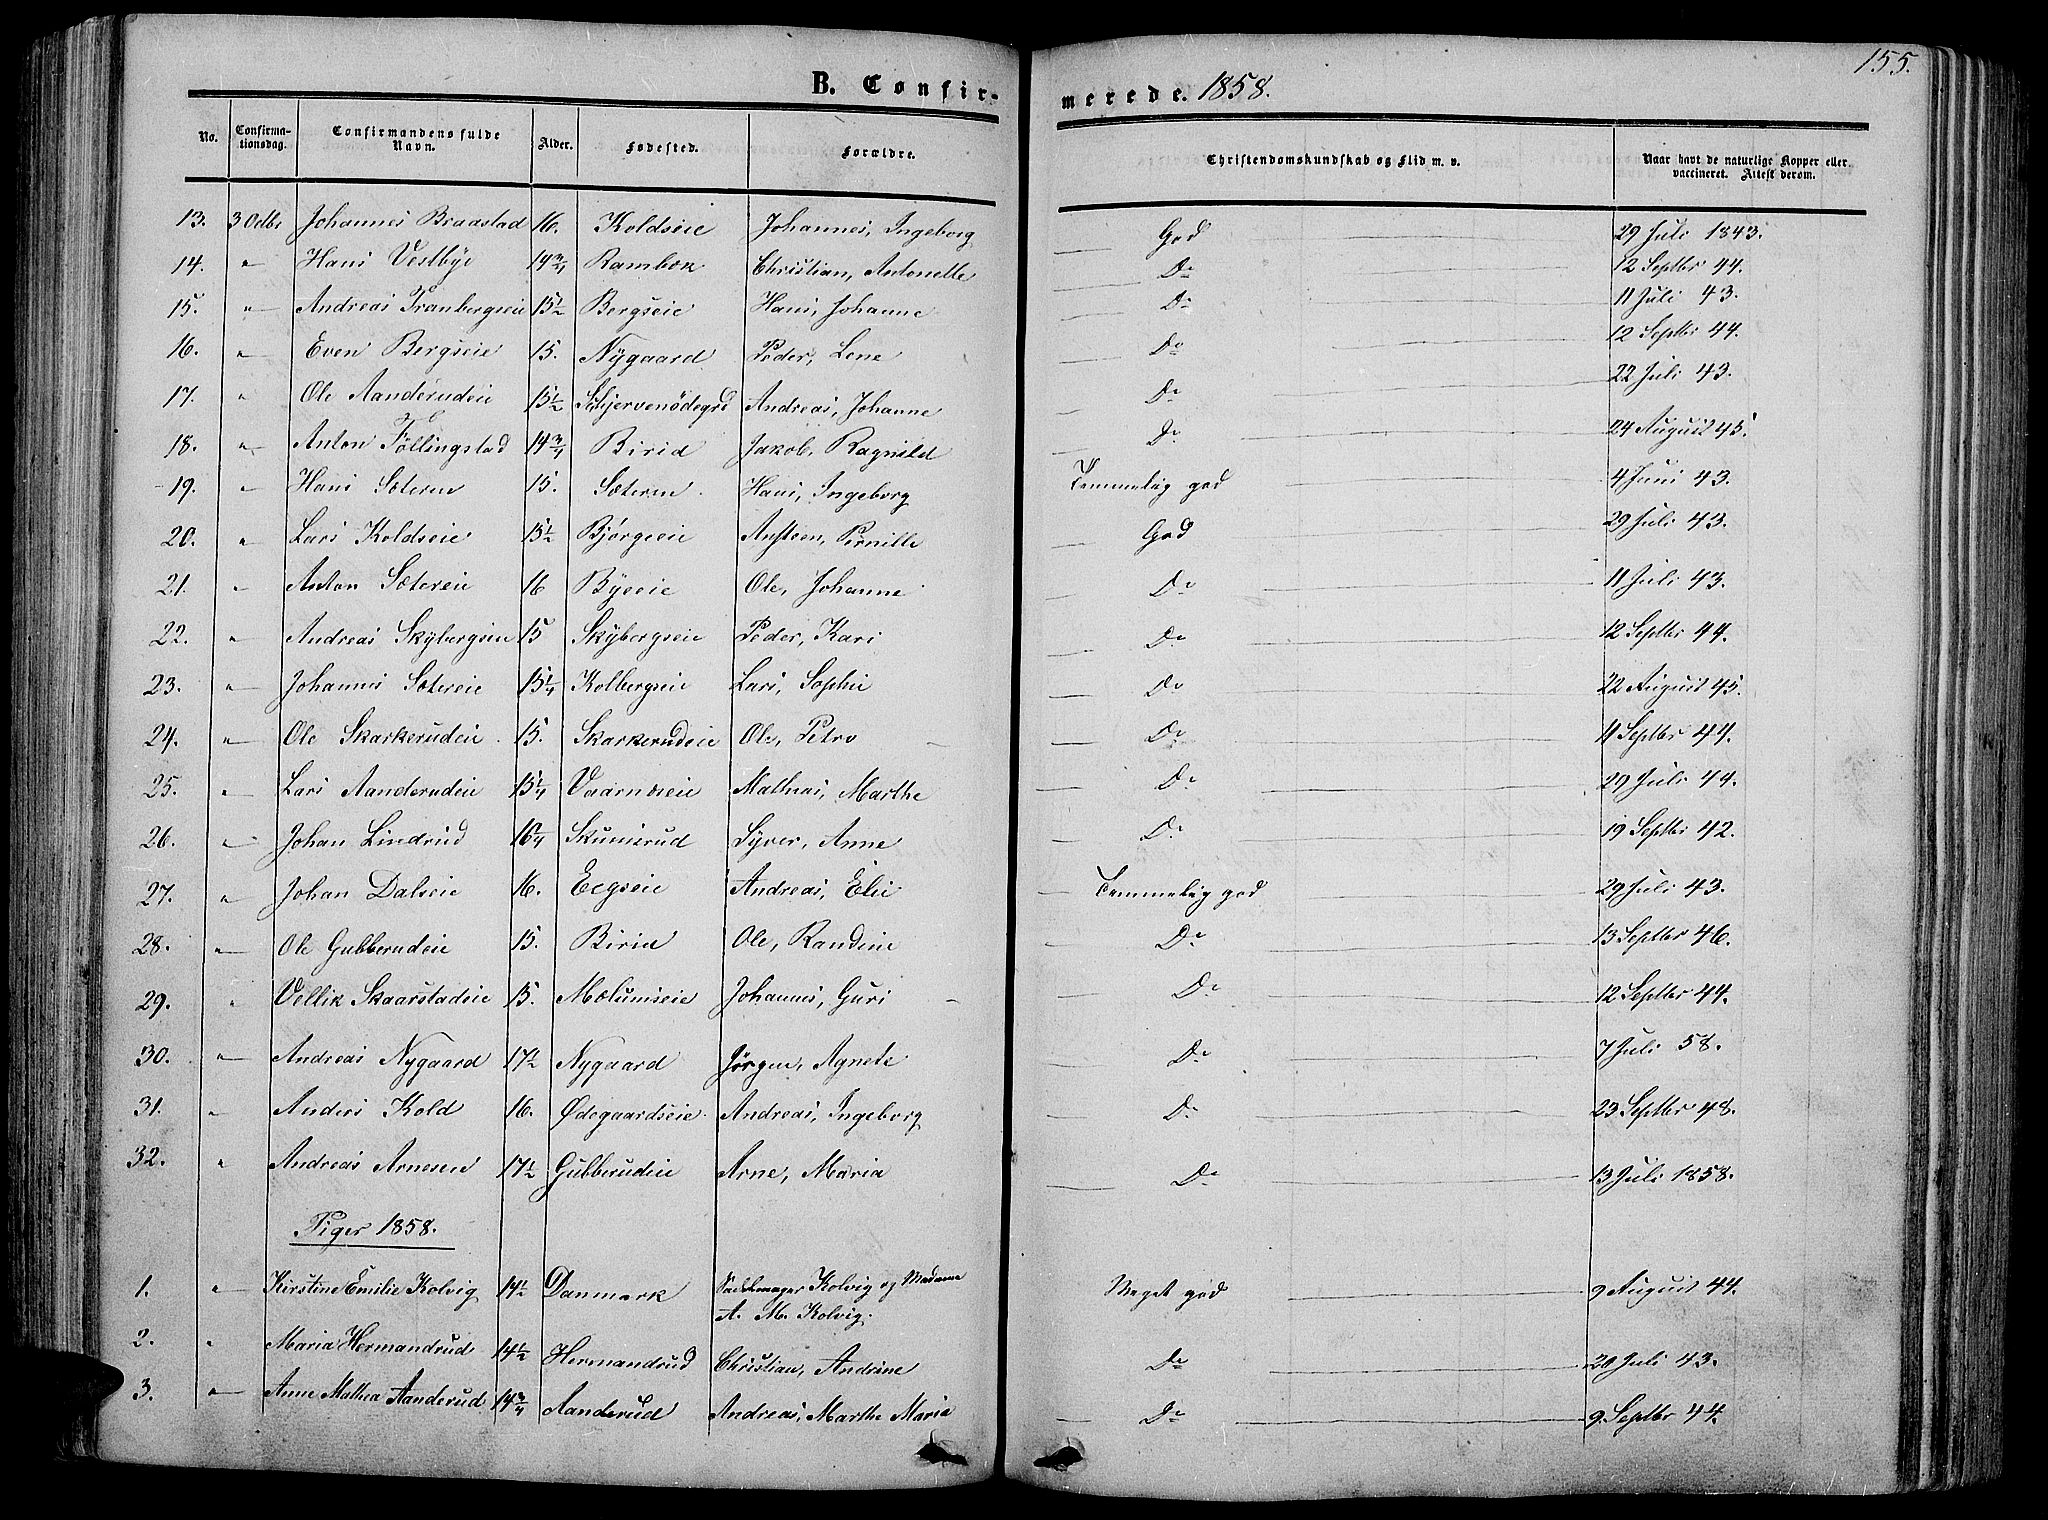 155.
B. Confirmerede. 1858.
No. Confirmationsdag. Confirmandens fulde Navn. Alder. Fødested. Forældre. Christendomskundskab og Flid m. v. Naar havt de naturlige Kopper eller vaccineret. Attest derom.
13. 3 Octbr Johannes Braastad 16. Koldseie Johannes, Ingeborg God 29 Juli 1843.
14. " Hans Vestbye 14 3/4 Rambæk Christian, Antonette Do 12 Septbr 44.
15. " Andreas Tranbergseie 15 1/2 Bergseie Hans, Johanne Do 11 Juli 43.
16. " Even Bergseie 15. Nygaard Peder, Lene Do 12 Septbr 44.
17. " Ole Aanderudeie 15 1/2 Schjervenødegrd Andreas, Johanne Do 22 Juli 43.
18. " Anton Föllingstad 14 3/4 Birid Jakob, Ragnild Do 24 August 45.
19. " Hans Sæteren 15. Sæteren Hans, Ingeborg Temmelig god 4 Juni 43.
20. " Lars Koldseie 15 1/2 Bjørgseie Ansteen, Pernille God 29 Juli 43.
21. " Anton Sætereie 16 Byseie Ole, Johanne Do 11 Juli 43.
22. " Andreas Skybergseie 15 Skybergseie Peder, Kari Do 12 Septbr 44.
23. " Johannes Sætereie 15 1/4 Kolbergseie Lars, Sophie Do 22 August 45.
24. " Ole Skarkerudeie 15. Skarkerudeie Ole, Petro Do 11 Septbr 44.
25. " Lars Aanderudeie 15 1/4 Vaarnæseie Mathias, Marthe Do 29 Juli 44.
26. " Johan Lindrud 16 Skunserud Syver, Anne Do 19 Septbr 42.
27. " Johan Dalseie 16. Eegseie Andreas, Elie Temmelig god 29 Juli 43.
28. " Ole Gubberudeie 15. Birid Ole, Randine Do 13 Septbr 46.
29. " Vellik Skaarstadeie 15. Mælumseie Johannes, Guri Do 12 Septbr 44.
30. " Andreas Nygaard 17 1/2 Nygaard Jörgen, Agnete Do 7 Juli 58.
31. " Anders Kold 16. Ødegaardseie Andreas, Ingeborg Do 23 Septbr 48.
32. " Andreas Arnesen 17 1/2 Gubberudeie Arne, Maria Do 13 Juli 1858.
Piger 1858.
1. " Kirstine Emilie Kolvig 14 1/2 Danmark Sadelmager Kolvig og Madame A. M. Kolvig. Meget god 9 August 44.
2. " Maria Hermandrud 14 1/2 Hermandrud Christian, Andrine Do 20 Juli 43.
3. " Anne Mathea Aanderud 14 3/4 Aanderud Andreas, Marthe Maria Do 9. Septbr 44.